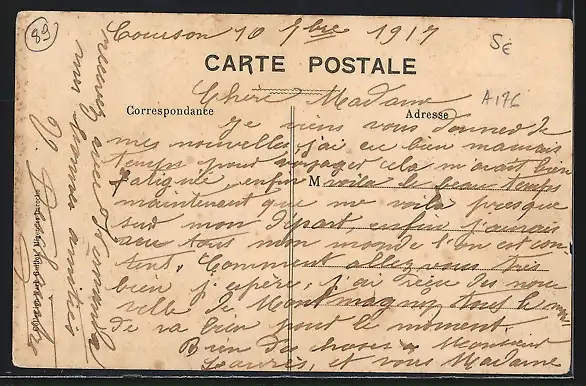 89
Courson 10 7bre 1917
SE
CARTE POSTALE
A176
Chère Madame
Correspondance
Adresse
Je viens vous donner de
mes nouvelles j'ai eu bien mauvais
temps pour voyager cela m'avait bien
fatigué enfin voila le beau temps
M
maintenant que me voila presque
sur mon départ enfin j'aurais
vu tous mon monde l'on est con
tent. Comment allez vous très
bien j'espère, j'ai reçu des nou
velle de Montmagny tous le
de va bien pour le moment.
Bien des choses a Monsieur
et vous Madame
recevez avec Fernande
mon amitiés